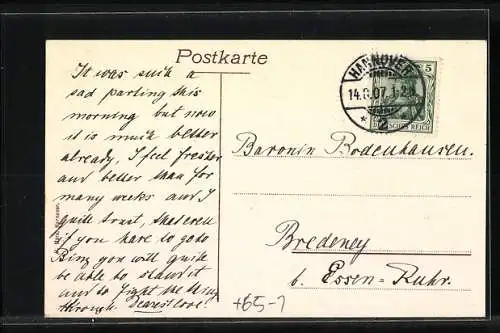 Postkarte
It was such a
sad parting this
morning but now
it is much better
already, I feel fresher
and better than for
many weeks and I
quite trust, that even
if you have to go to
Bing you will quite
be able to stand it
and to fight the
through Dearest love!
HANNOVER
14.8.07. 1-2
* 2
5
DEUTSCHES REICH
Baronin Bodenhausen.
Bredeney
b. Essen-Ruhr.
+65-1